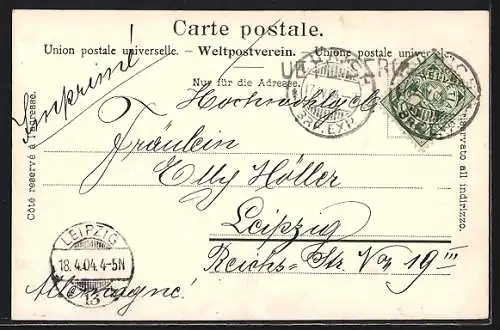 Carte postale.
Union postale universelle. – Weltpostverein. – Unione postale universale.
Nur für die Adresse.
Côté réservé à l'adresse.
Imprimé
Fräulein
Elly Höller
Leipzig
Reichs-Str. No 19 III
Allemagne
LEIPZIG
18.4.04.4-5N
13
BRF.EXP.
HELVETIA
riservato all indirizzo.